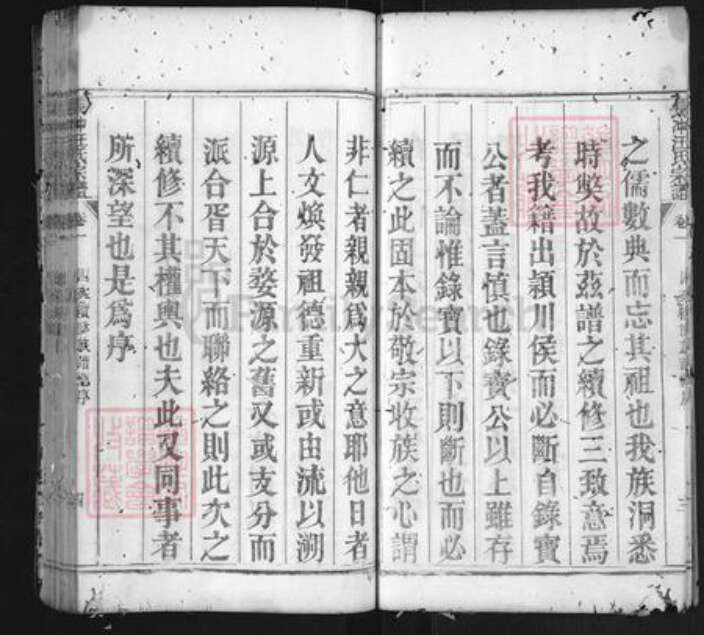 之儒數典而忘其祖也我族洞悉
時獘故於茲譜之續修三致意焉
考我籍出潁川侯而必斷自錄寶
公者蓋言慎也錄寶公以上雖存
而不論惟錄寶以下則斷也而必
續之此固本於敬宗收族之心謂
非仁者親親爲大之意耶他日者
人文煥發祖德重新或由流以溯
源上合於婺源之舊又或支分而
派合胥天下而聯絡之則此次之
續修不其權輿也夫此又同事者
所深望也是爲序
汪氏宗譜
卷一
FamilySearch